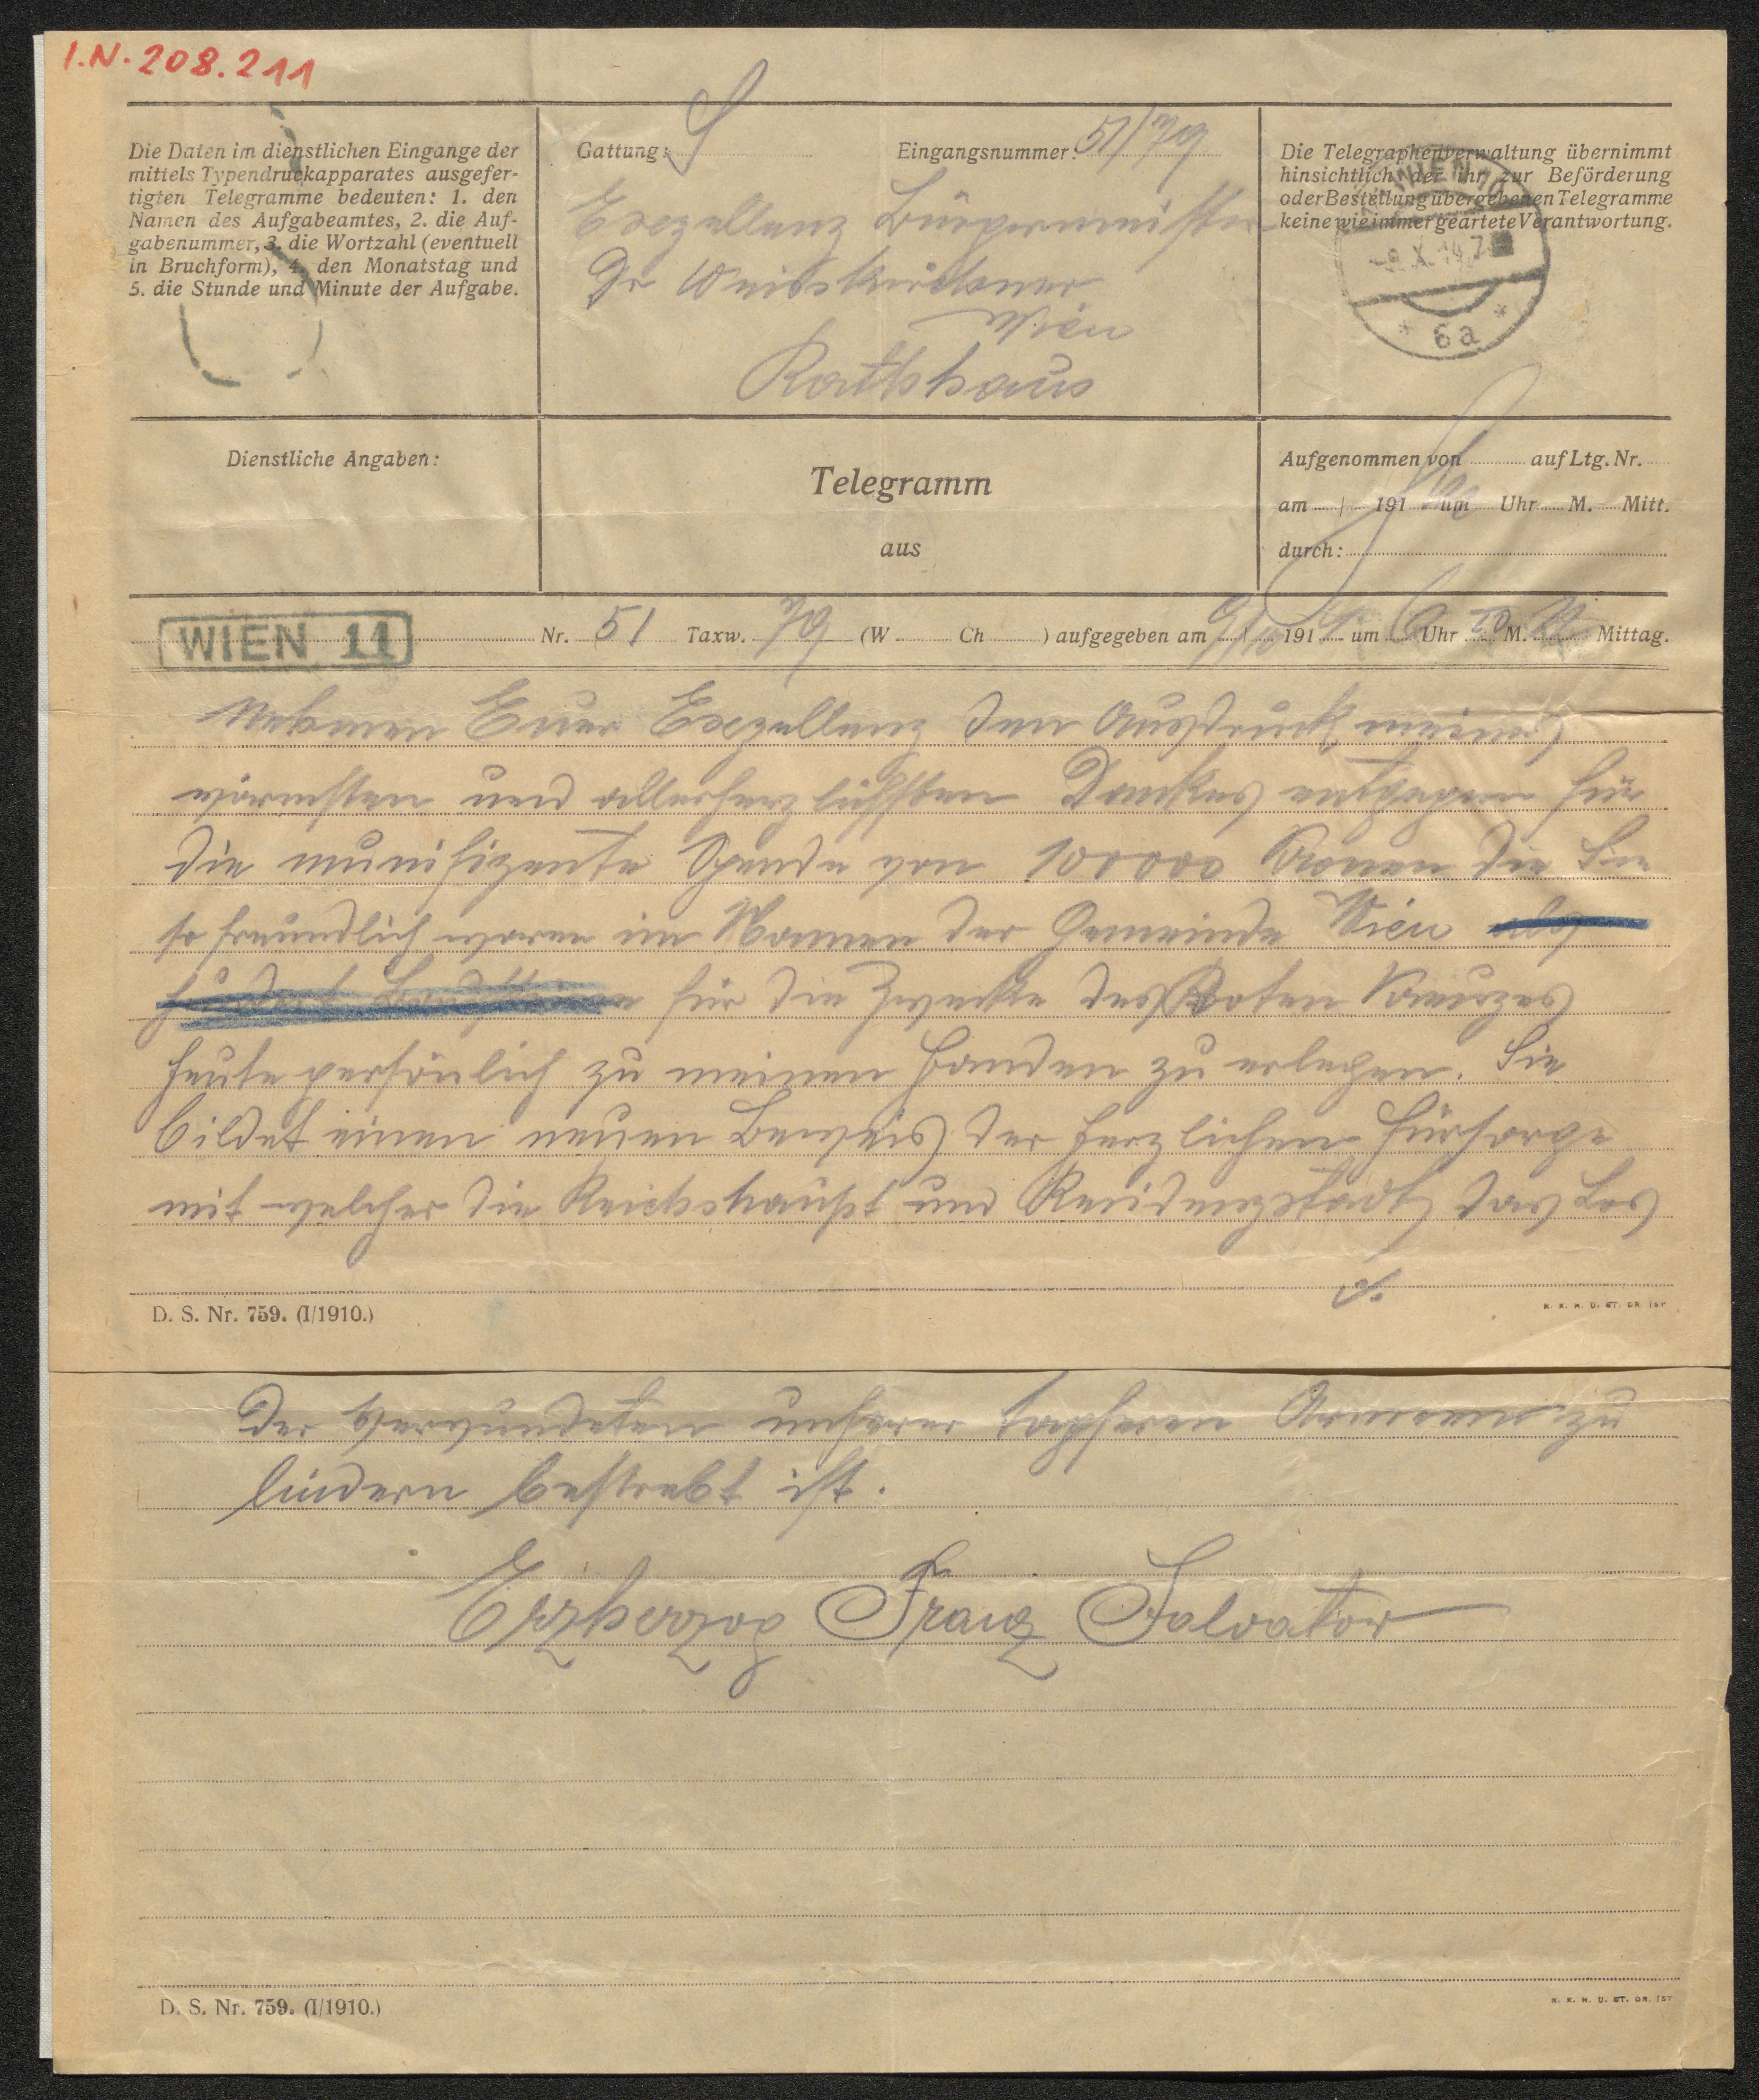 I.N. 208.211
Die Daten im dienstlichen Eingange der
mittels Typendruckapparates ausgefer-
tigten Telegramme bedeuten: 1. den
Namen des Aufgabeamtes, 2. die Auf-
gabenummer, 3. die Wortzahl (eventuell
in Bruchform), 4. den Monatstag und
5. die Stunde und Minute der Aufgabe.
Gattung: S
Eingangsnummer: 51/79
Exzellenz Bürgermeister
Dr Weisskirchner
Wien
Rathhaus
Die Telegraphenverwaltung übernimmt
hinsichtlich der ihr zur Beförderung
oder Bestellung übergebenen Telegramme
keine wie immer geartete Verantwortung.
WIEN
-9.X.14.7
* 6a *
Dienstliche Angaben:
Telegramm
aus
Aufgenommen von auf Ltg. Nr.
am / 191 um Uhr M. Mitt.
durch:
WIEN 11 Nr. 51 Taxw. 79 (W Ch ) aufgegeben am 9/10 1914 um 6 Uhr 50 M. N Mittag.
Nehmen Euer Exzellenz den Ausdruck meines
wärmsten und allerherzlichsten Dankes entgegen für
die munifizente Spende von 100000 Kronen die Sie
so freundlich waren im Namen der Gemeinde Wien
für die Zwecke des Roten Kreuzes
heute persönlich zu meinen Handen zu erlegen. Sie
bildet einen neuen Beweis der herzlichen Fürsorge
mit welcher die Reichshaupt und Residenzstadt das Los
D. S. Nr. 759. (I/1910.)
K. K. H. U. ST. DR. 157
der Verwundeten unserer tapferen Armeen zu
lindern bestrebt ist.
Erzherzog Franz Salvator
D. S. Nr. 759. (I/1910.)
K. K. H. U. ST. DR. 157